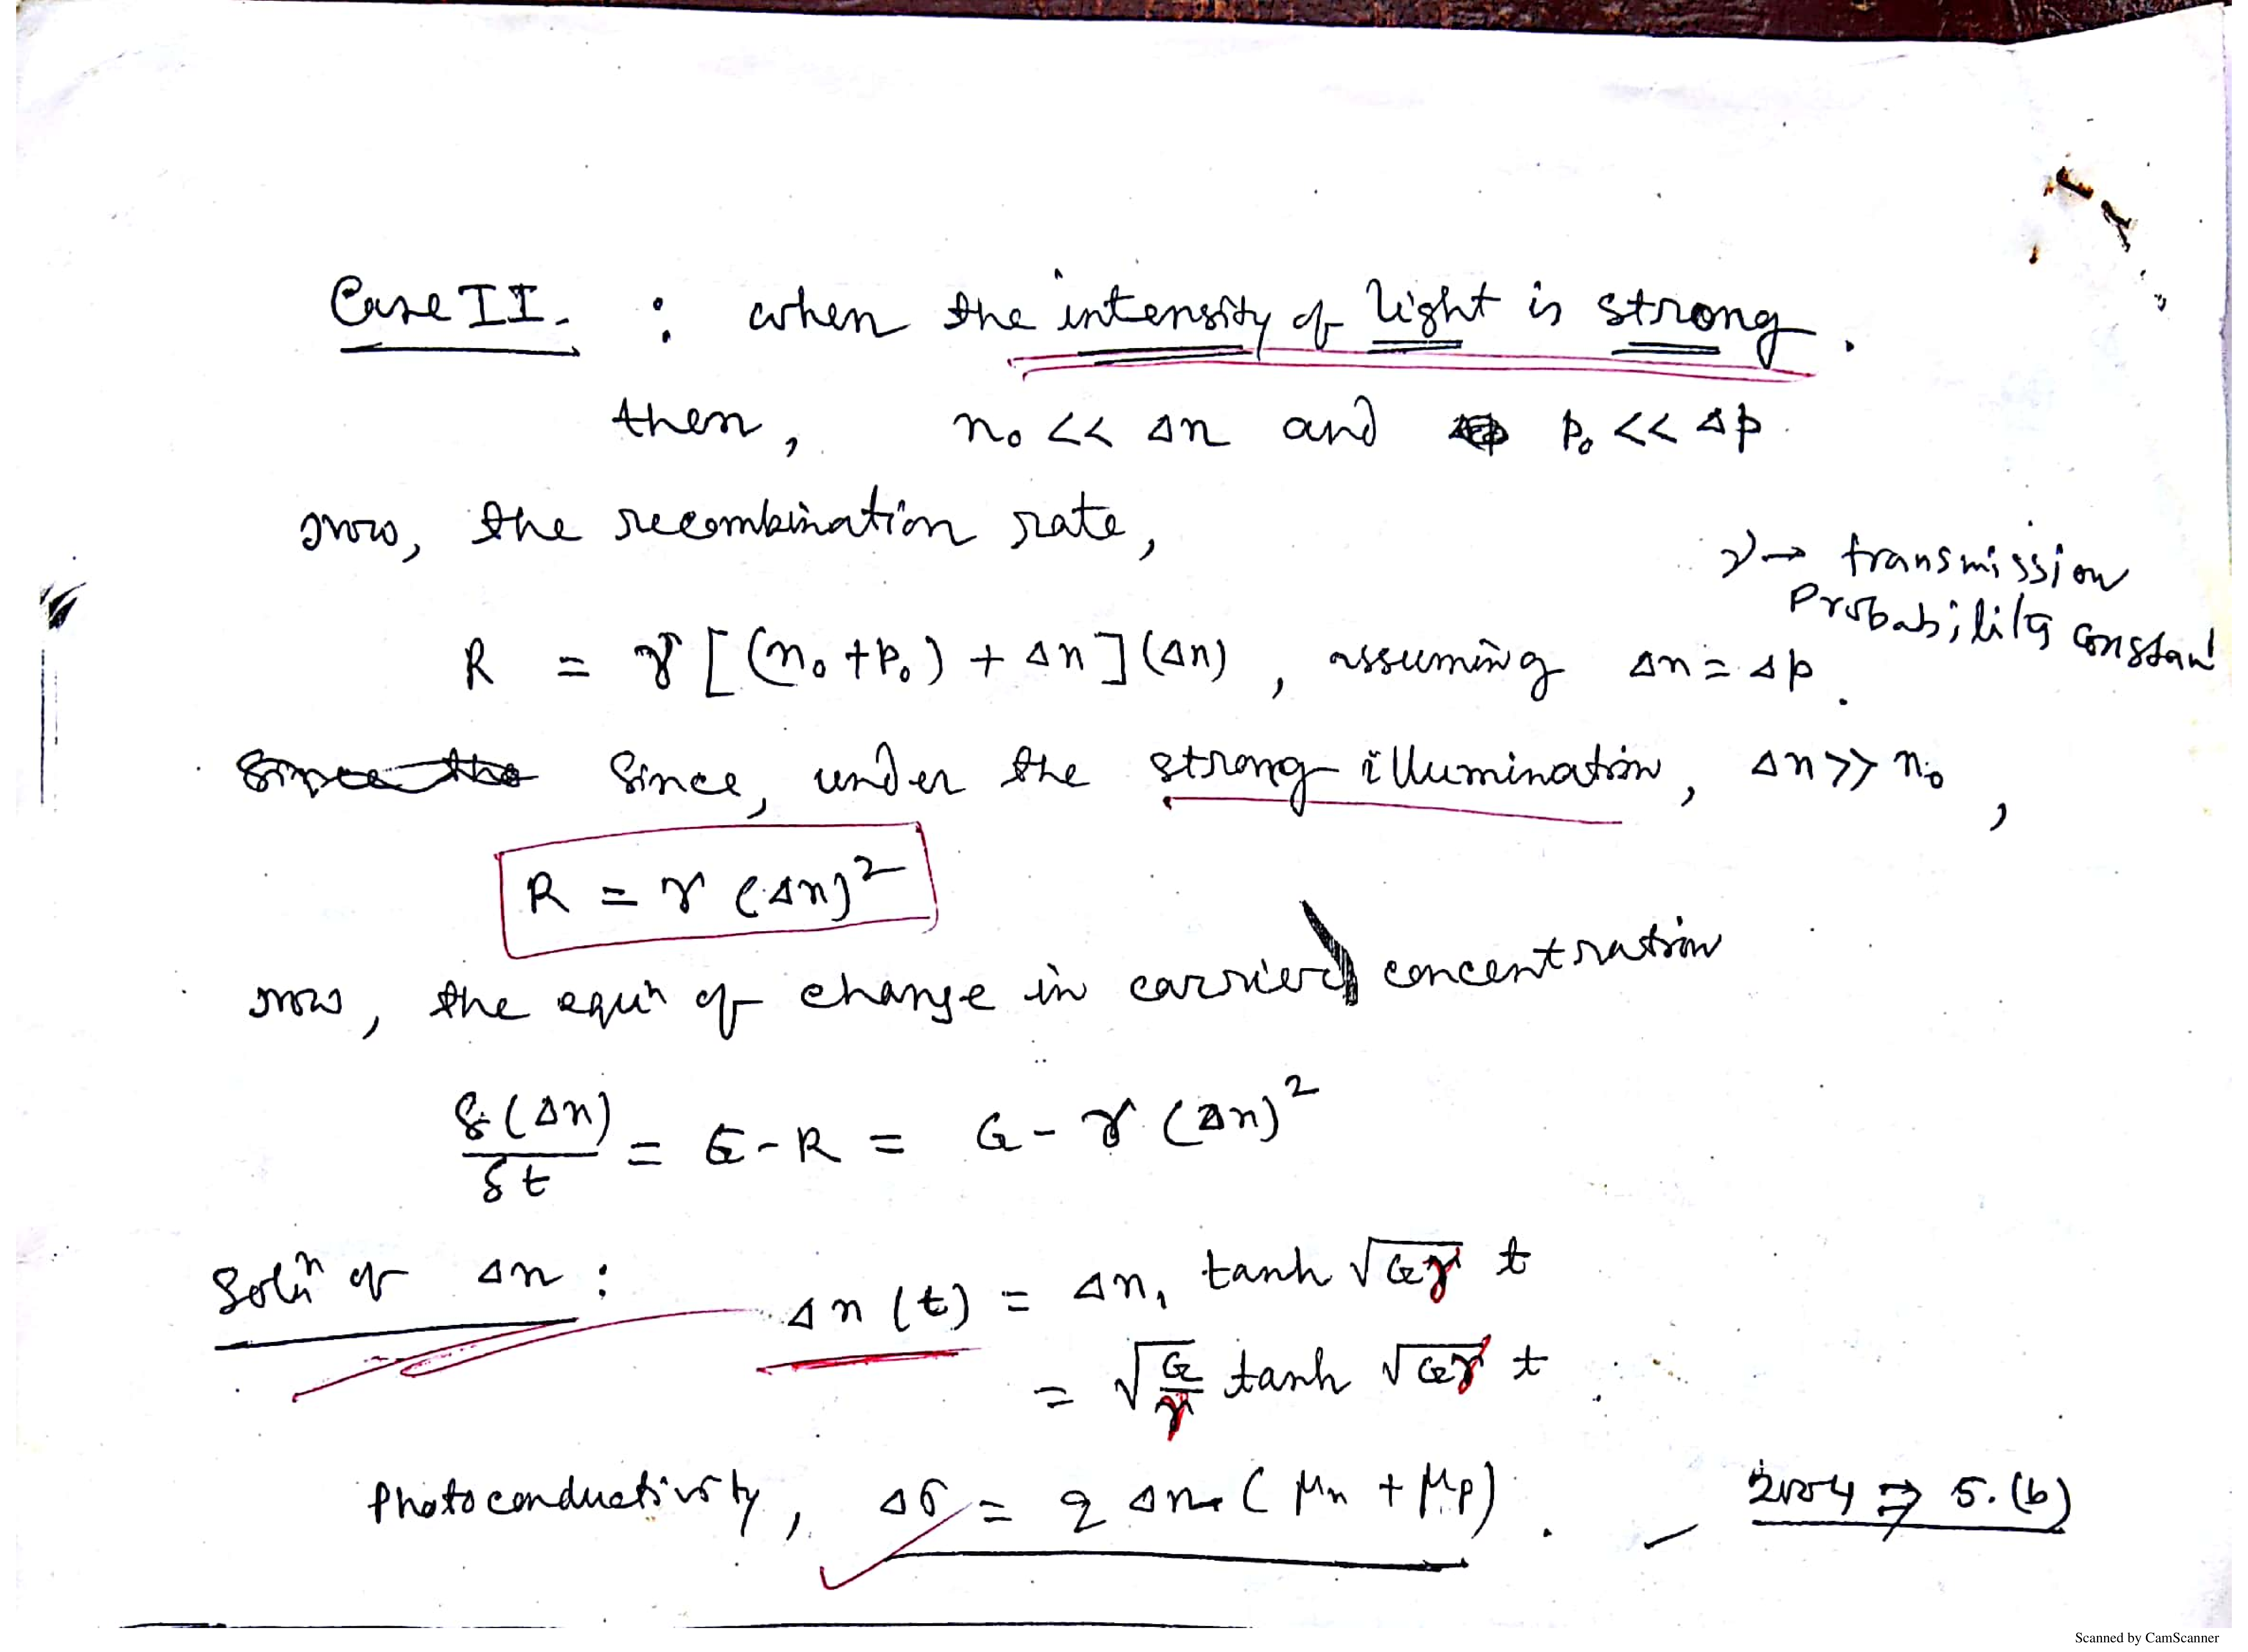 Case II. : when the intensity of light is strong.
then, n₀ << Δn and p₀ << Δp.
now, the recombination rate,
γ → transmission
Probability constant
R = γ [(n₀+p₀) + Δn] (Δn), assuming Δn = Δp.
Since the Since, under the strong illumination, Δn >> n₀,
R = γ (Δn)²
now, the equⁿ of change in carrier concentration
δ(Δn)/δt = G - R = G - γ (Δn)²
Solⁿ of Δn : Δn (t) = Δn₁ tanh √(Gγ) t
= √(G/γ) tanh √(Gγ) t
Photoconductivity, Δσ = q Δn (μn + μp). 2004 ⇒ 5.(b)
Scanned by CamScanner